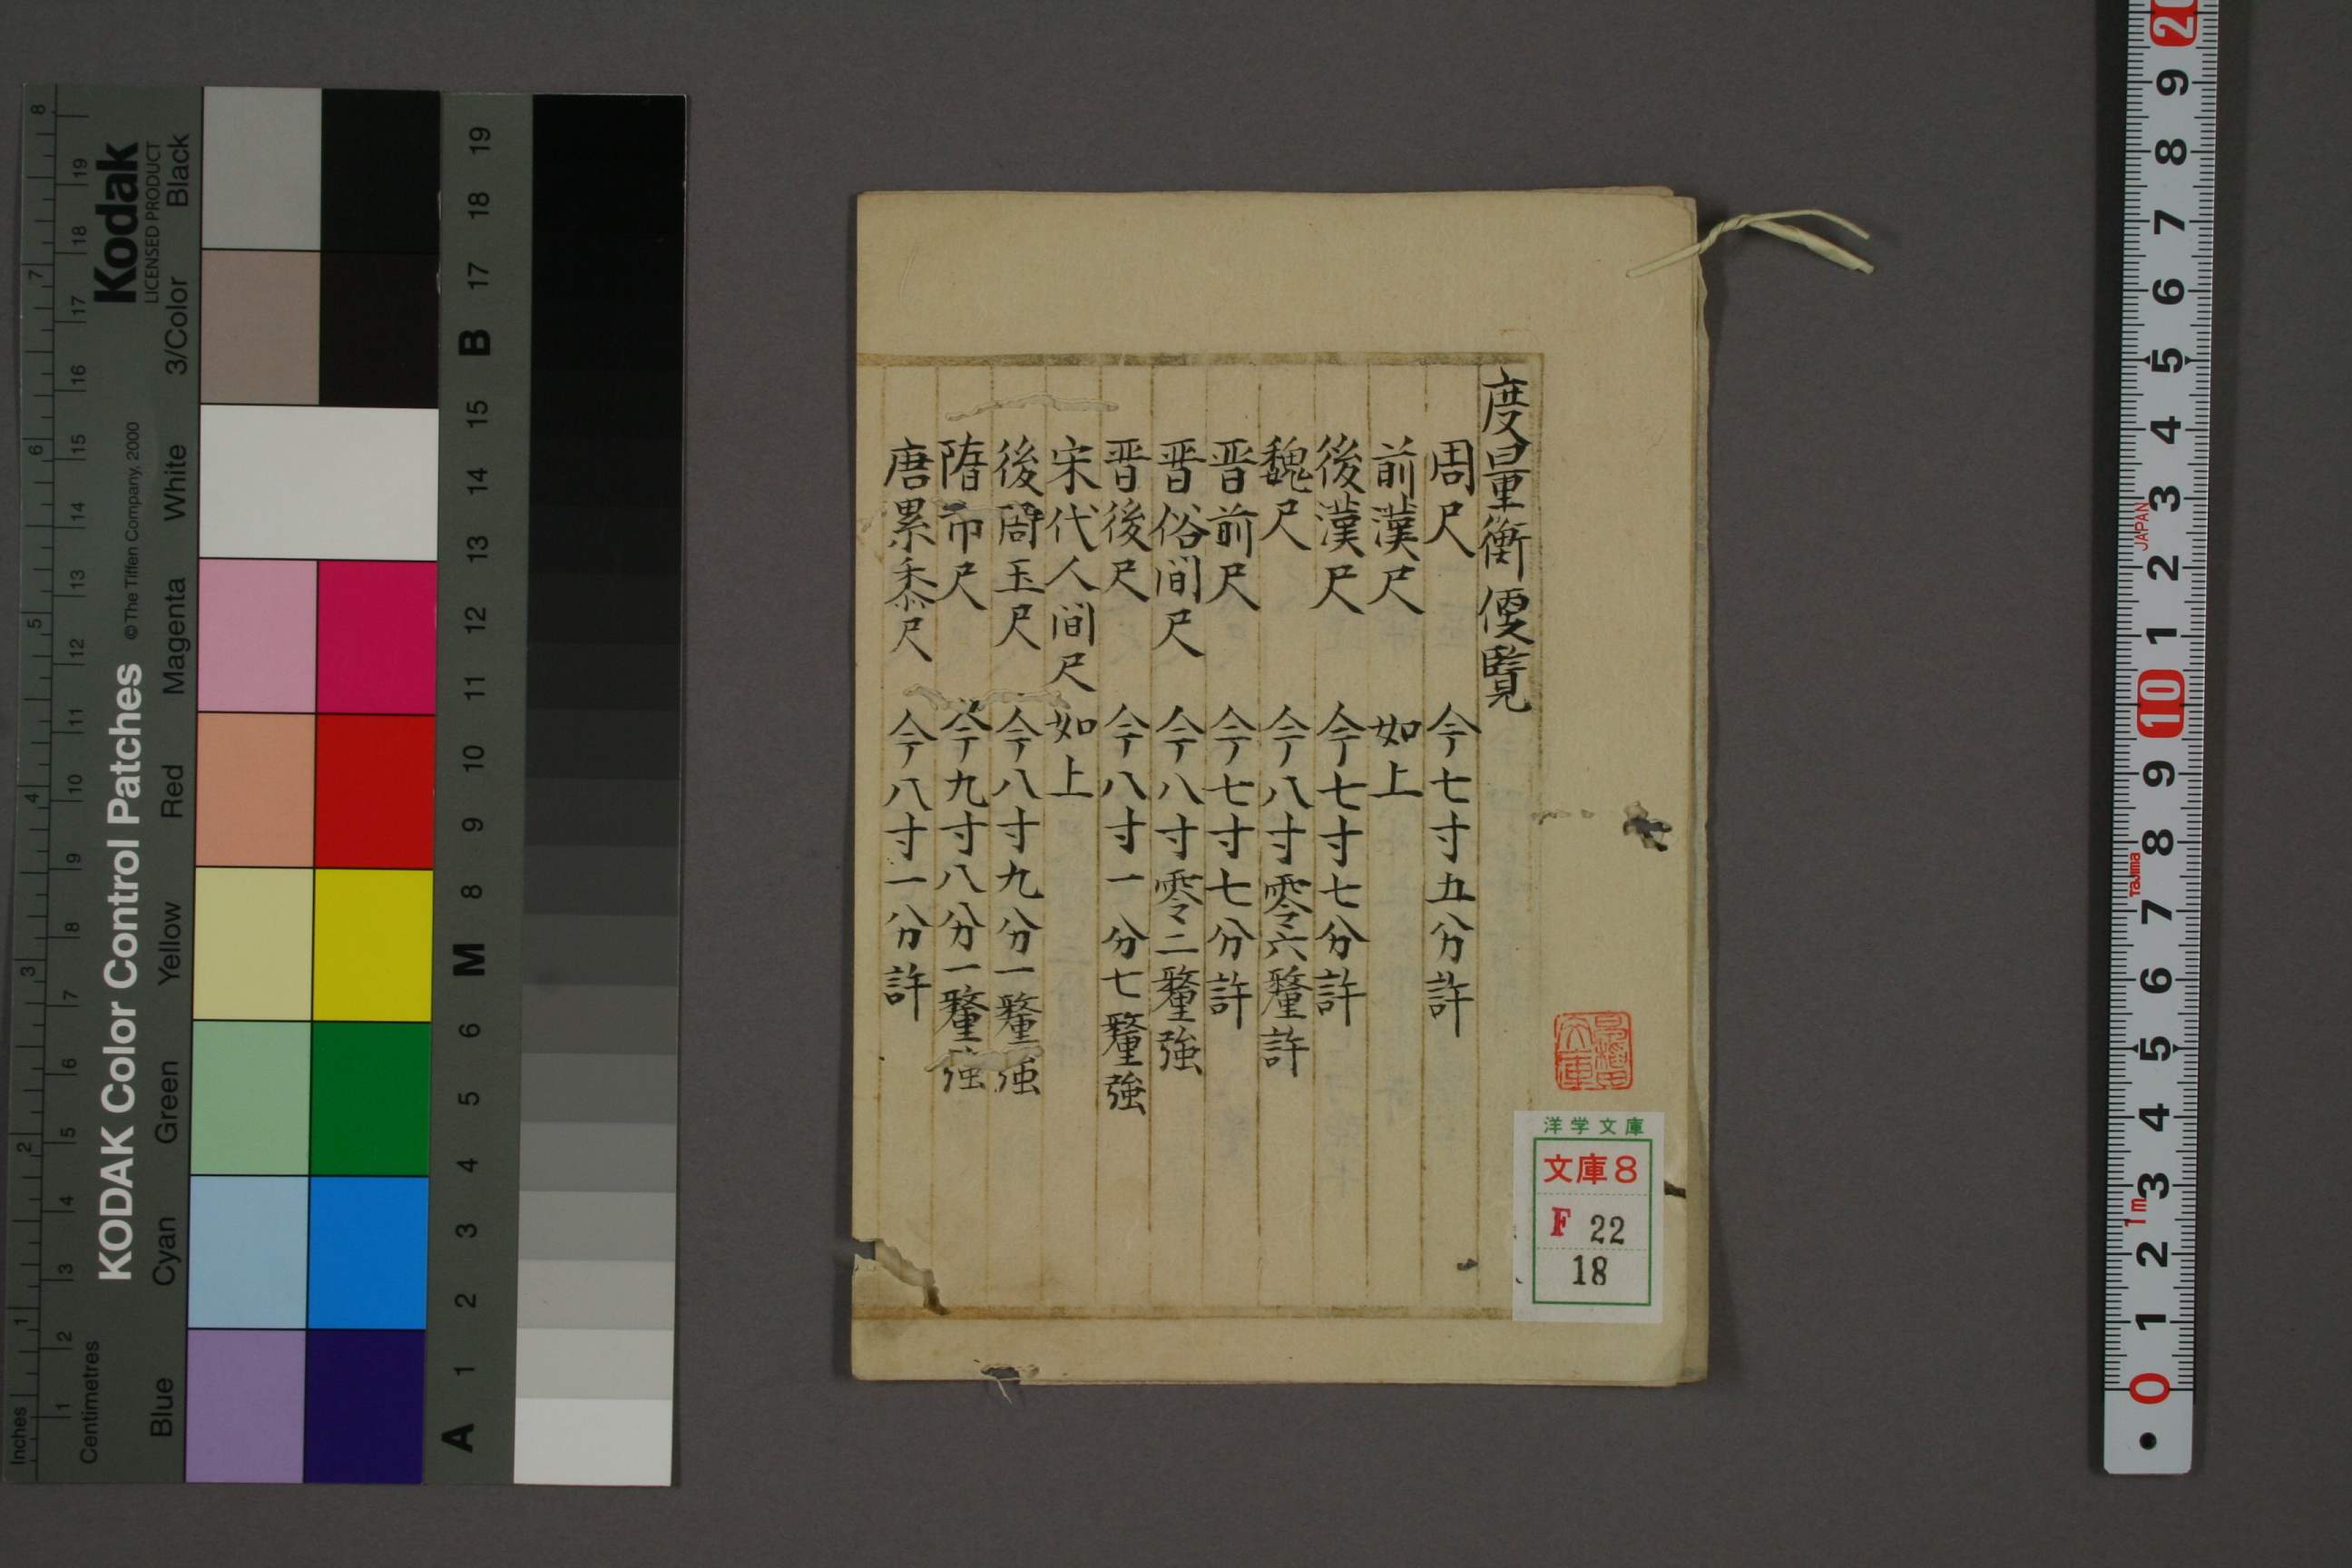 度量衡便覧
周尺 今七寸五分許
前漢尺 如上
後漢尺 今七寸七分許
魏尺 今八寸零六釐許
晋前尺 今七寸七分許
晋俗间尺 今八寸零二釐強
晋後尺 今八寸一分七釐強
宋代人间尺 如上
後周玉尺 今八寸九分一釐強
隋市尺 今九寸八分一釐強
唐累黍尺 今八寸一分許
洋学文庫
文庫8
F 22
18
KODAK Color Control Patches
©The Tiffen Company, 2000
Kodak
LICENSED PRODUCT
Inches
1 2 3 4 5 6 7 8
Centimetres
1 2 3 4 5 6 7 8 9 10 11 12 13 14 15 16 17 18 19
Blue Cyan Green Yellow Red Magenta White 3/Color Black
A 1 2 3 4 5 6 M 8 9 10 11 12 13 14 15 B 17 18 19
0 1 2 3 4 5 6 7 8 9 10 1 2 3 4 5 6 7 8 9 20
1m
Tajima
JAPAN